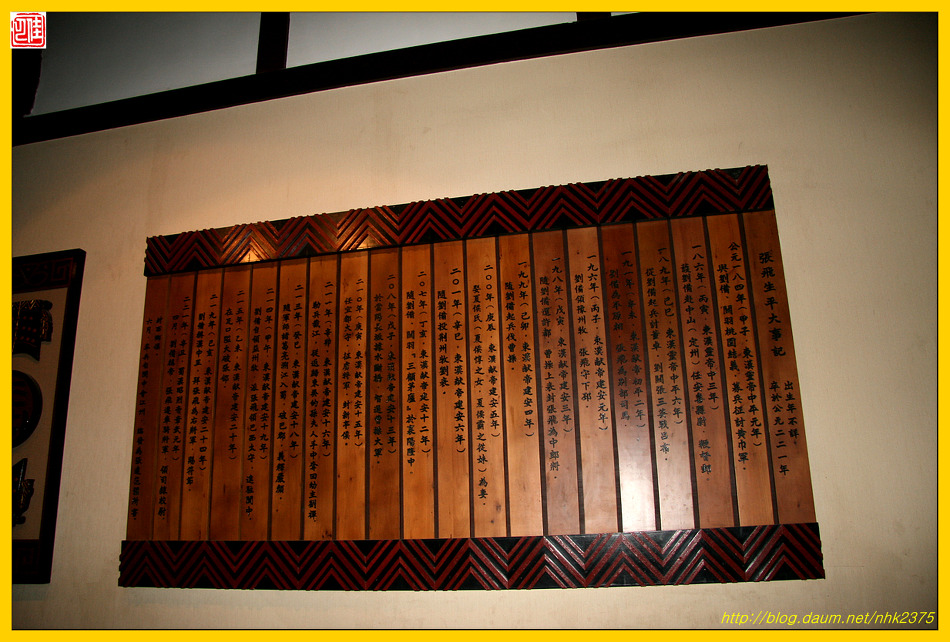 張飛生平大事記
出生年不詳，
卒於公元二二一年
公元一八四年（甲子，東漢靈帝中平元年）
與劉備、關羽桃園結義，募兵征討黃巾軍。
一八六年（丙寅，東漢靈帝中平三年）
隨劉備赴中山（定州）任安喜縣尉，鞭督郵。
一八九年（己巳，東漢靈帝中平六年）
從劉備起兵討董卓，劉關張三英戰呂布。
一九一年（辛未，東漢獻帝初平二年）
張飛為別部司馬。
一九六年（丙子，東漢獻帝建安元年）
劉備領豫州牧，張飛守下邳。
一九八年（戊寅，東漢獻帝建安三年）
隨劉備還許都，曹操上表封張飛為中郎將。
一九九年（己卯，東漢獻帝建安四年）
隨劉備起兵伐曹操。
二〇〇年（庚辰，東漢獻帝建安五年）
娶夏侯氏（夏侯惇之女，夏侯霸之從妹）為妻。
二〇一年（辛巳，東漢獻帝建安六年）
隨劉備投荊州牧劉表。
二〇七年（丁亥，東漢獻帝建安十二年）
隨劉備、關羽"三顧茅廬"於襄陽隆中。
二〇八年（戊子，東漢獻帝建安十三年）
於當陽長坂據水斷橋，智退曹操大軍。
二一〇年（庚寅，東漢獻帝建安十五年）
任宜都太守、征虜將軍，封新亭侯。
二一一年（辛卯，東漢獻帝建安十六年）
二一三年（癸巳，東漢獻帝建安十八年）
隨軍師諸葛亮溯江入蜀，破巴郡，義釋嚴顏。
二一四年（甲午，東漢獻帝建安十九年）
劉備自領益州牧，張飛領巴西太守，進駐閬中。
二一五年（乙未，東漢獻帝建安二十年）
二一九年（己亥，東漢獻帝建安二十四年）
劉備稱漢中王，拜張飛為右將軍、假節。
http://blog.daum.net/nhk2375